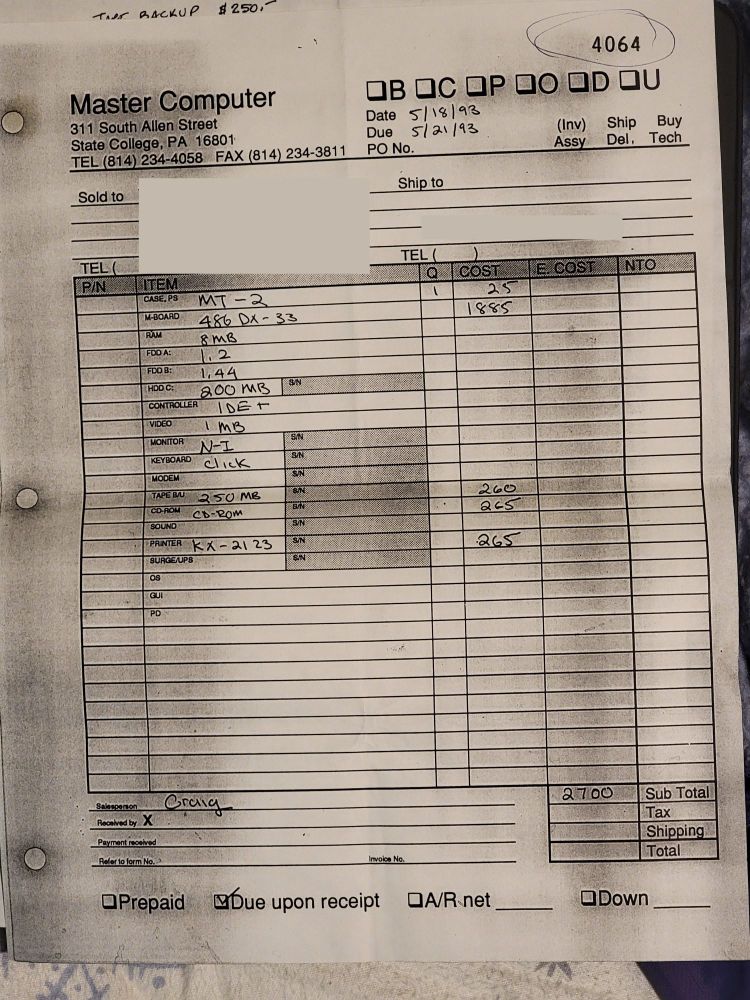 TAPE BACKUP $250.-
4064
Master Computer
311 South Allen Street
State College, PA 16801
TEL (814) 234-4058 FAX (814) 234-3811
❏B ❏C ❏P ❏O ❏D ❏U
Date 5/18/93
Due 5/21/93
PO No.
(Inv) Ship Buy
Assy Del. Tech
Sold to
Ship to
TEL (
TEL ( )
P/N ITEM Q COST E. COST NTO
CASE, PS MT-2 1 25
M-BOARD 486 DX-33 1885
RAM 8 MB
FDD A: 1.2
FDD B: 1.44
HDD C: 200 MB S/N
CONTROLLER IDE+
VIDEO 1 MB
MONITOR N-I S/N
KEYBOARD click S/N
MODEM S/N
TAPE B/U 250 MB S/N 260
CD-ROM CD-ROM S/N 265
SOUND S/N
PRINTER KX-2123 S/N 265
SURGE/UPS S/N
OS
GUI
PD
2700 Sub Total
Tax
Shipping
Total
Salesperson Craig
Received by X
Payment received
Refer to form No. Invoice No.
❏Prepaid ☑Due upon receipt ❏A/R net ❏Down